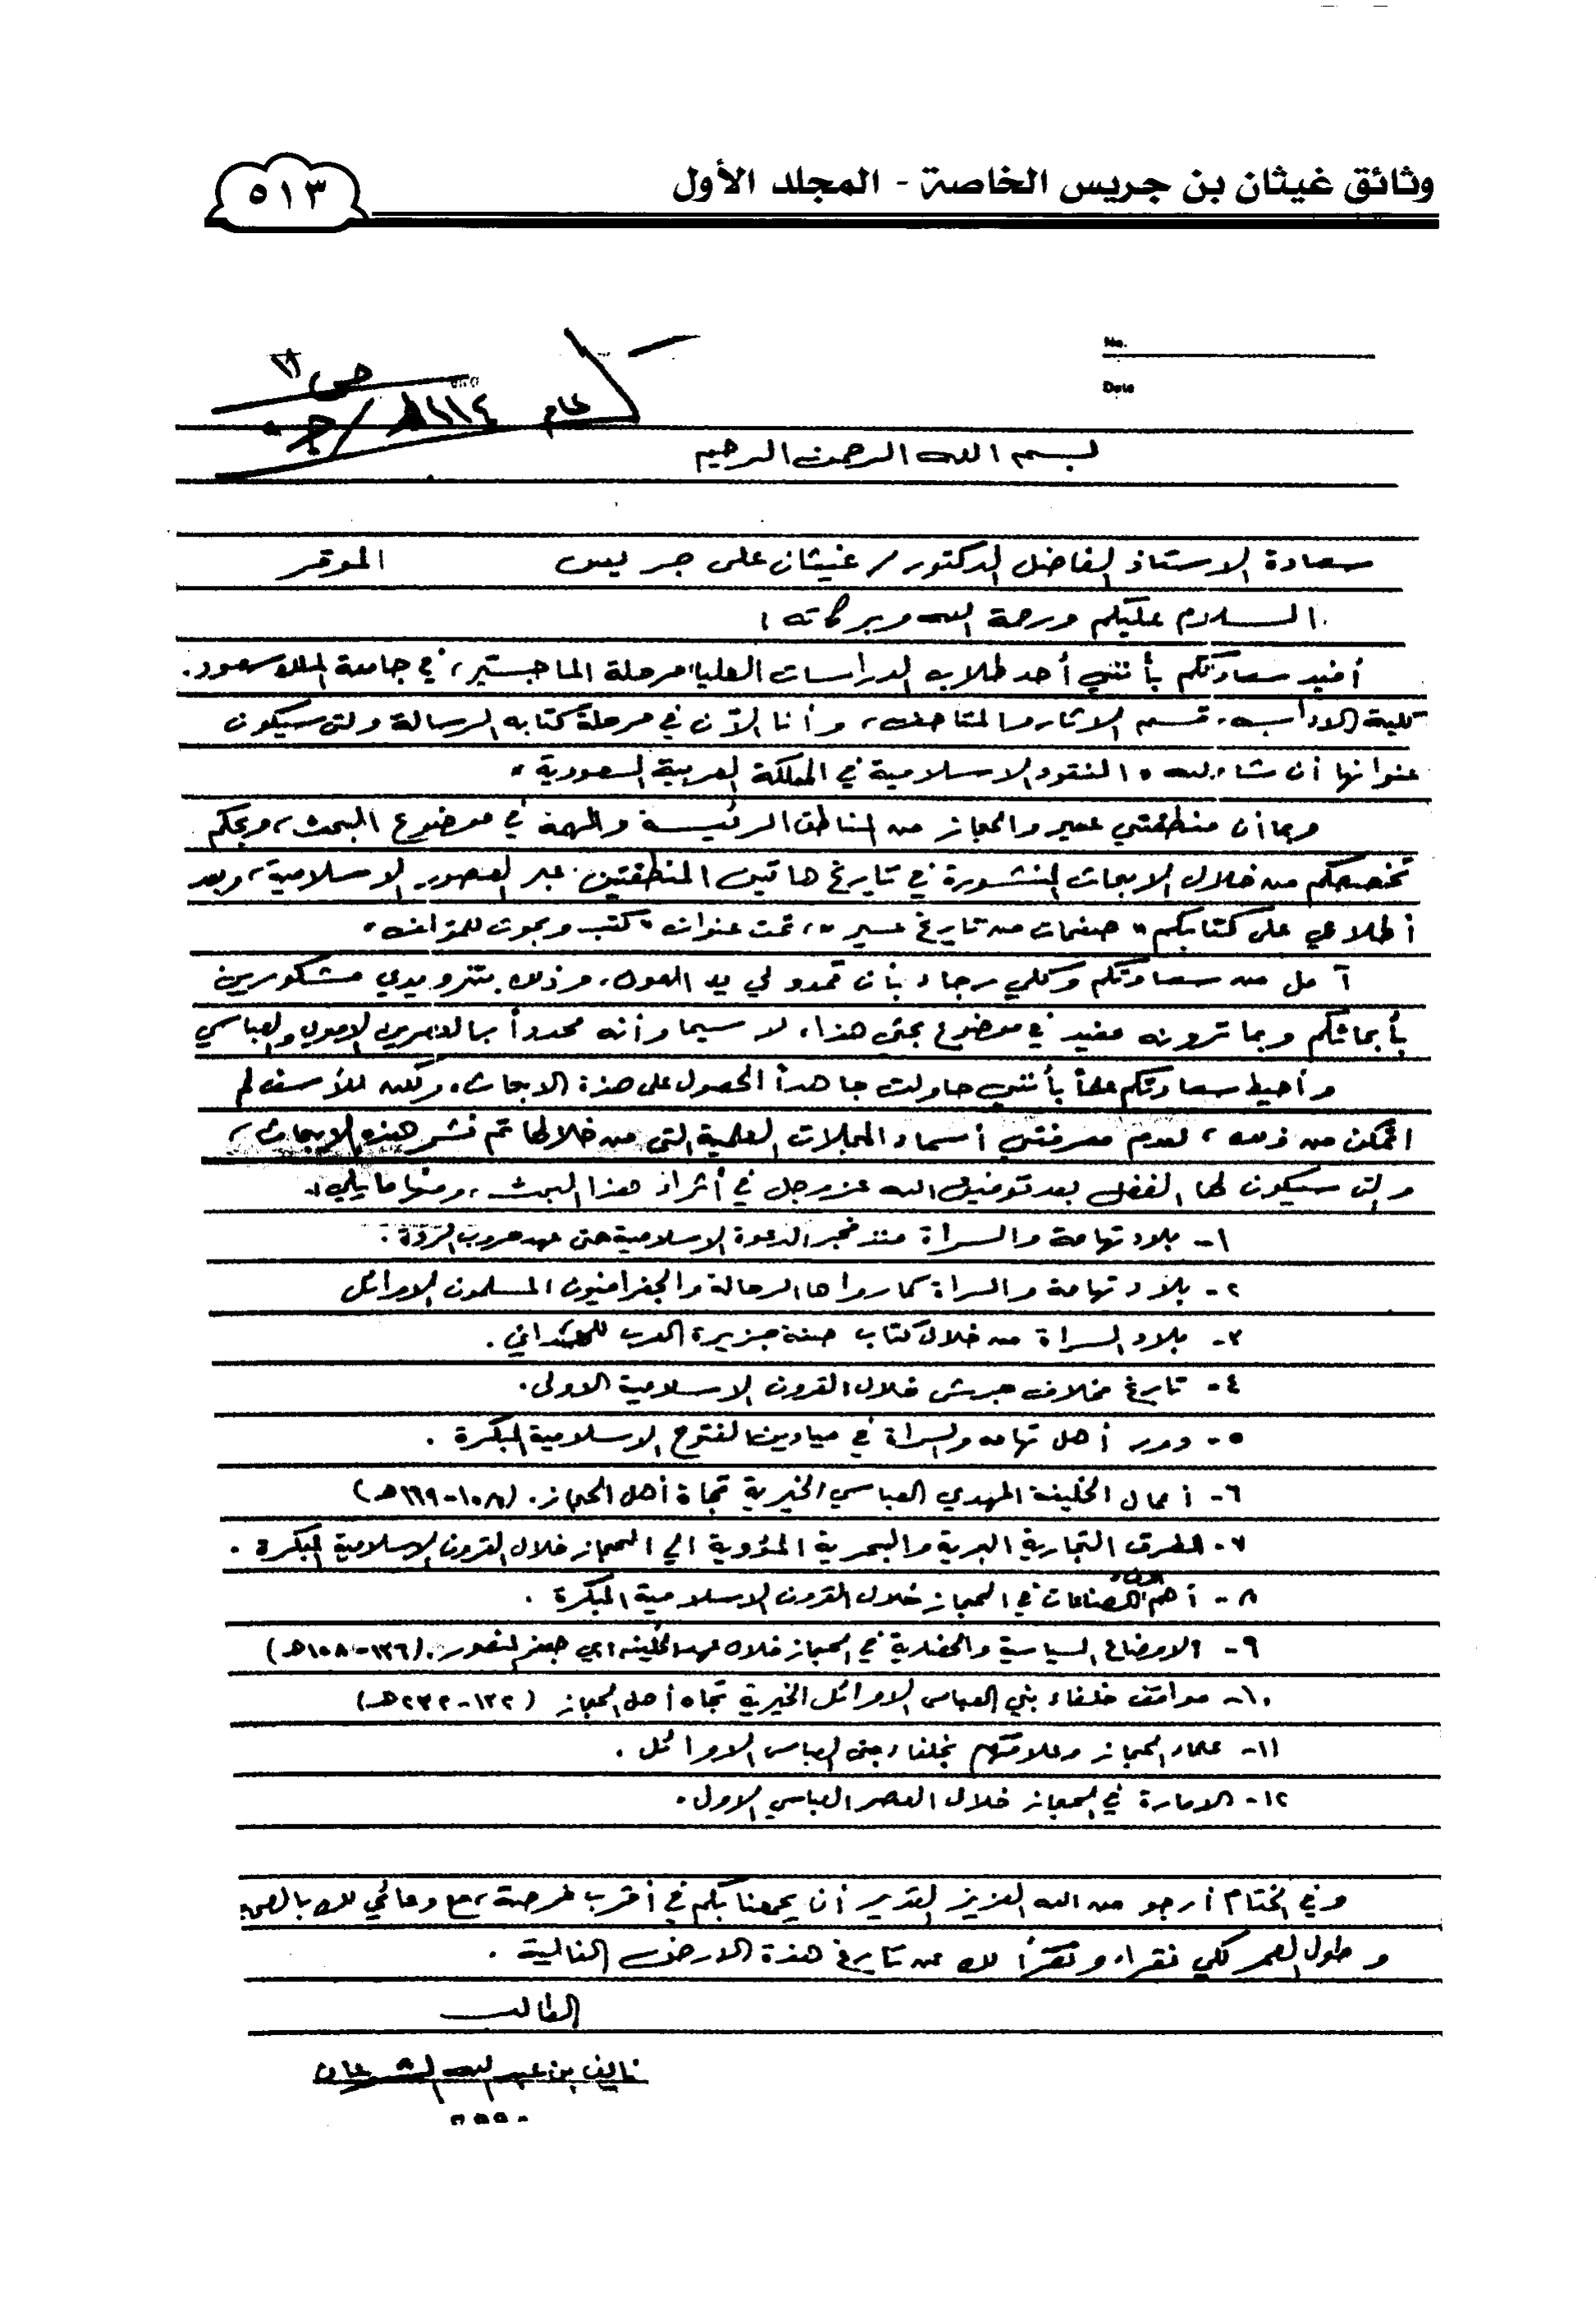 وثائق غيثان بن جريس الخاصة - المجلد الأول
٥١٣
No.
Date
عام ١١١٤هـ / جـ ٥
بسم الله الرحمن الرحيم
سعادة الاستاذ الفاضل الدكتور / غيثان على جريس الموقر
السلام عليكم ورحمة الله وبركاته ،
أفيد سعادتكم بأنني أحد طلاب الدراسات العليا، مرحلة الماجستير، في جامعة الملك سعود.
كلية الاداب، قسم الاثار والمتاحف، وأنا الآن في مرحلة كتابه الرسالة ولتى سيكون
عنوانها أن شاء الله " النقود الاسلامية في المملكة العربية السعودية "
وبما أن منطقتي عسير والحجاز من المناطق الرئيسة والمهمة في موضوع البحث، وبحكم
تخصصكم من خلال الابحاث المنشورة في تاريخ هاتين المنطقتين عبر العصور الاسلامية، وبعد
أطلاعي على كتابكم " صفحات من تاريخ عسير "، تحت عنوان " كتب وبحوث للمؤلف "
آمل من سعادتكم وكلي رجاء بأن تمدو لي يد العون، وذلك بتزويدي مشكورين
بأبحاثكم وبما ترونه مفيد في موضوع بحثى هذا، لا سيما وأنه محدوداً بالعصرين الاموي والعباسي
وأحيط سعادتكم علماً بأنني حاولت جاهداً الحصول على هذة الابحاث، ولكن للأسف لم
اتمكن من ذلك، لعدم معرفتي أسماء المجلات العلمية التي من خلالها تم نشر هذه الابحاث،
والتى سيكون لها الفضل بعد توفيق الله عز وجل في أثراء هذا البحث، ومنها ما يلي :
١- بلاد تهامة والسراة منذ فجر الدعوة الاسلامية حتى عهد حروب الردة .
٢- بلاد تهامة والسراة كما رواها الرحالة والجغرافيون المسلمون الاوائل
٣- بلاد السراة من خلال كتاب صفة جزيرة العرب للهمداني .
٤- تاريخ مخلاف جرش خلال القرون الاسلامية الاولى .
٥- دور أهل تهامه والسراة في ميادين الفتوح الاسلامية المبكرة .
٦- أعمال الخليفة المهدي العباسي الخيرية تجاة أهل الحجاز . (١٥٨-١٦٩هـ)
٧- الطرق التجارية البرية والبحرية المؤدية الي الحجاز خلال القرون الاسلامية المبكرة .
٨- أهم الصناعات في الحجاز خلال القرون الاسلامية المبكرة .
٩- الاوضاع السياسية والحضارية في الحجاز خلال عهد الخليفه ابي جعفر المنصور . (١٣٦-١٥٨هـ)
١٠- مواقف خلفاء بني العباس الاوائل الخيرية تجاه أهل الحجاز (١٣٢-٢٣٢هـ)
١١- علماء الحجاز وعلاقتهم بخلفاء بني العباس الاوائل .
١٢- الامارة في الحجاز خلال العصر العباسي الاول .
وفي الختام أرجو من الله العزيز القدير أن يجمعنا بكم في أقرب فرصة، مع دعائي لك بالصحة
وطول العمر لكي نقراء ونقرأ لك عن تاريخ هذة الارض الغالية .
الطالب
نايف بن عبد الله الشرعان